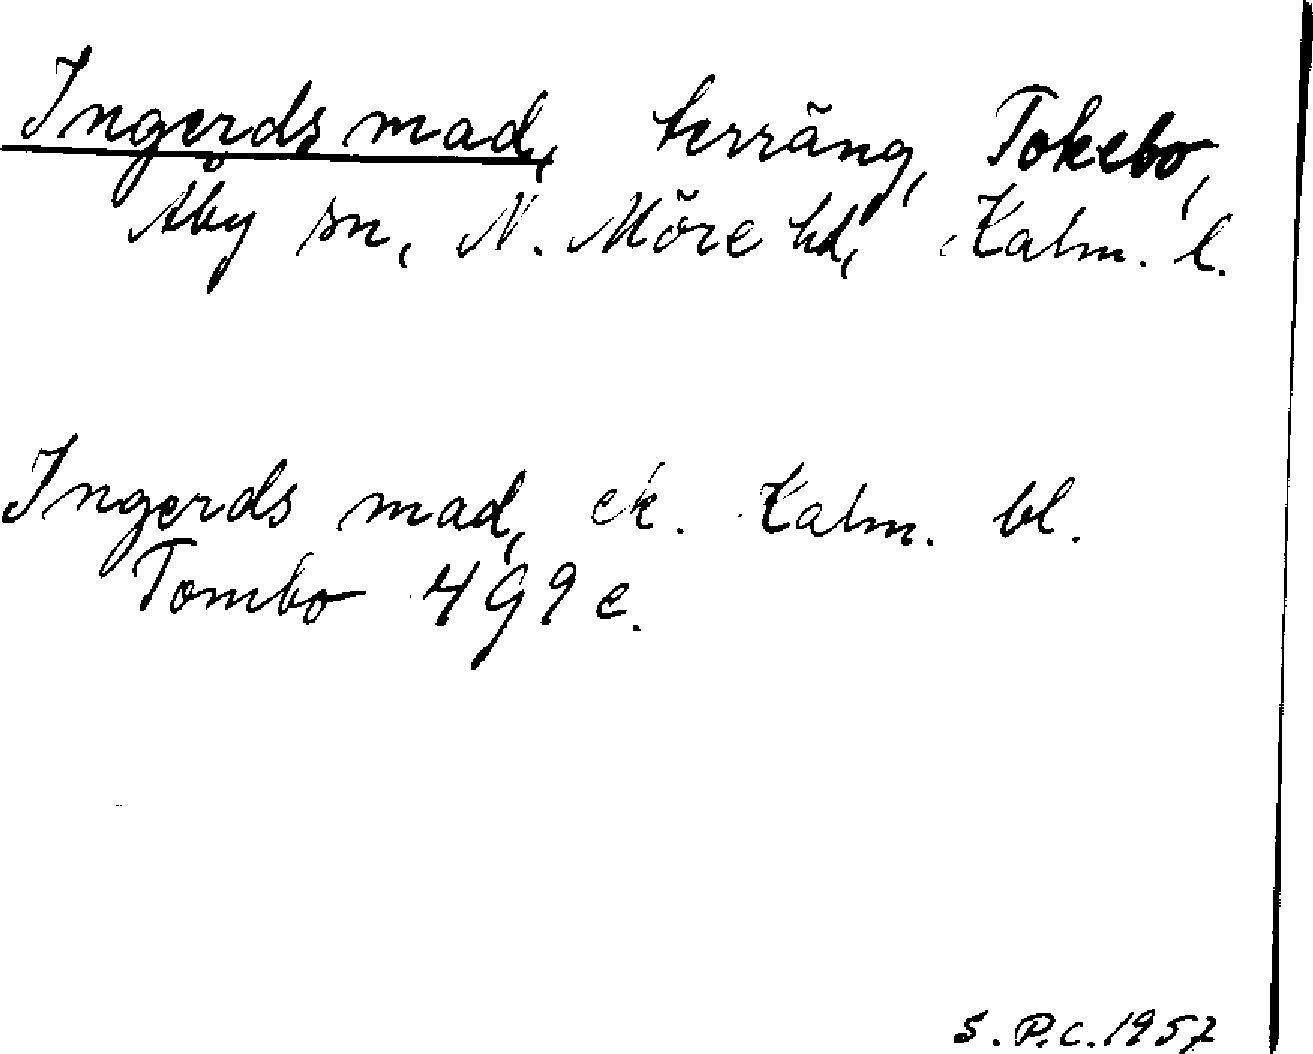 Ingerds mad, terräng, Tokebo,
Åby sn, N. Möre hd, Kalm. l.
Ingerds mad, ek. Kalm. bl.
Tombo 4G9e.
S.P.C. 1957